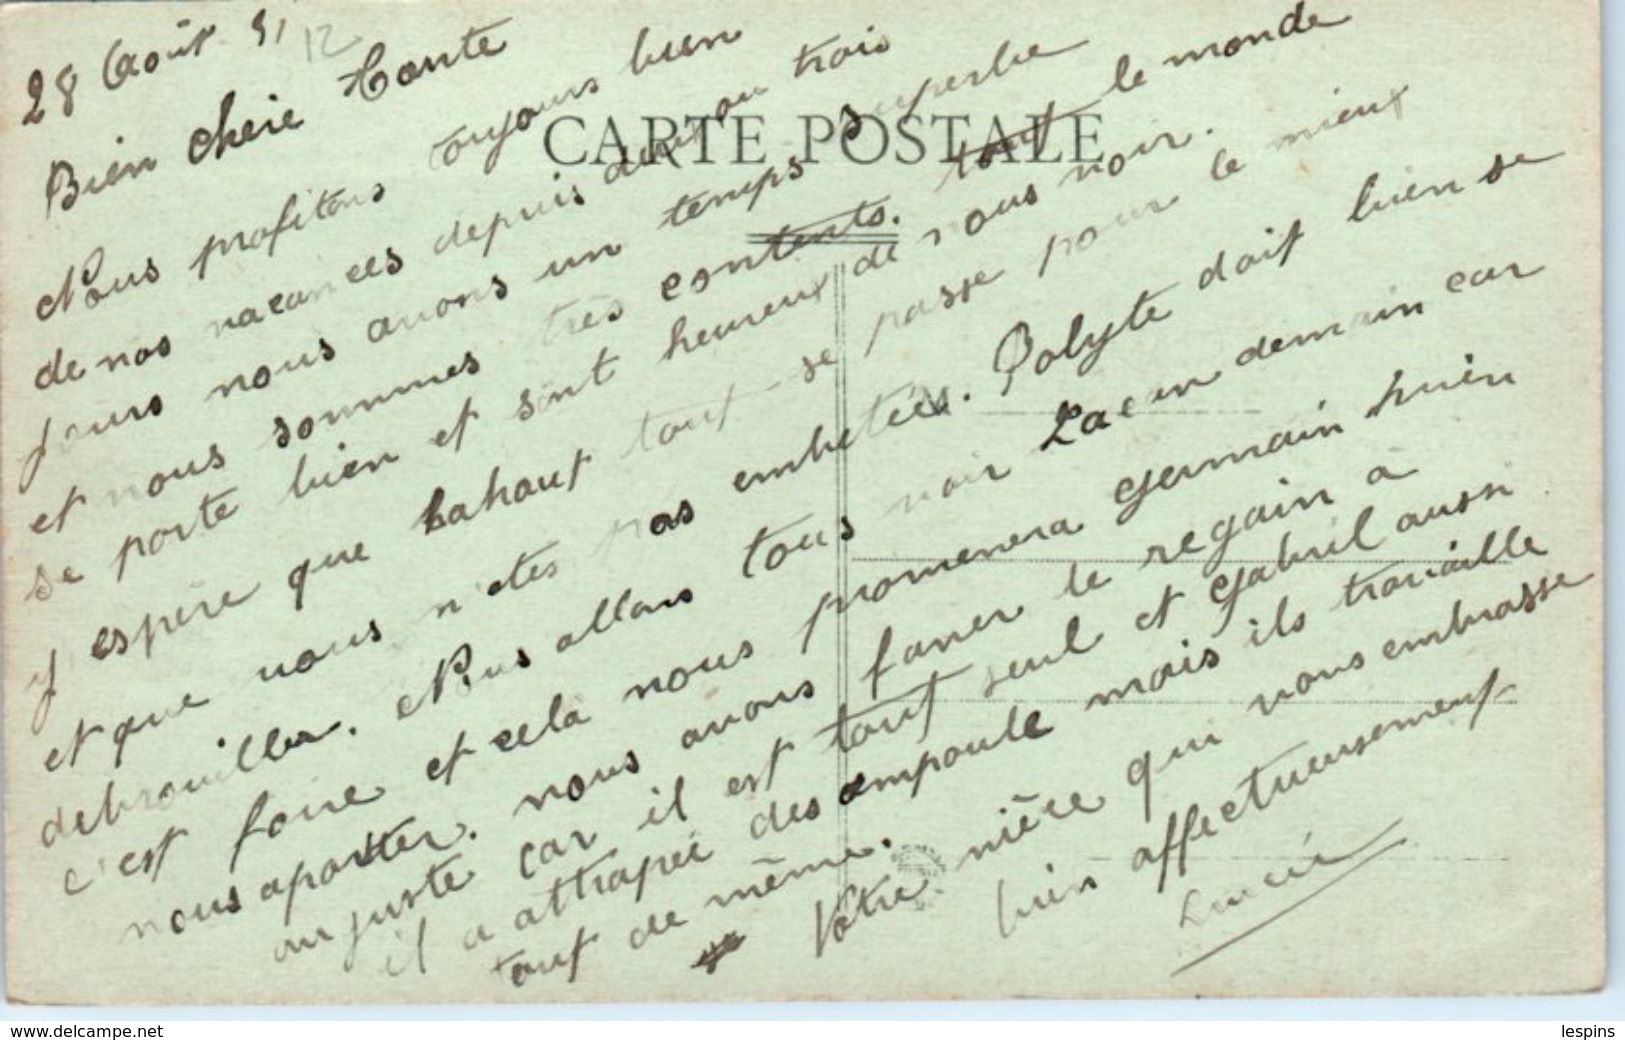 28 Août 31 12
Bien chere Tante
CARTE POSTALE
Nous profitons toujours bien
de nos vacances depuis deux ou trois
jours nous avons un temps superbe
et nous sommes très contents. tout le monde
se porte bien et sont heureux de nous voir.
J'espère que Lahaut tout se passe pour le mieux
et que vous n'etes pas embetées. Polyte doit bien se
debrouiller. Nous allons tous voir demain car
c'est foire et cela nous promenera Germain hier
nous aporter. nous avons faner le regain à
au juste car il est tout seul et Gabriel aussi
il a attrapée des empoule mais ils travaille
tout de même. Votre nièce qui vous embrasse
bien affectueusement
Lucie
www.delcampe.net
lespins